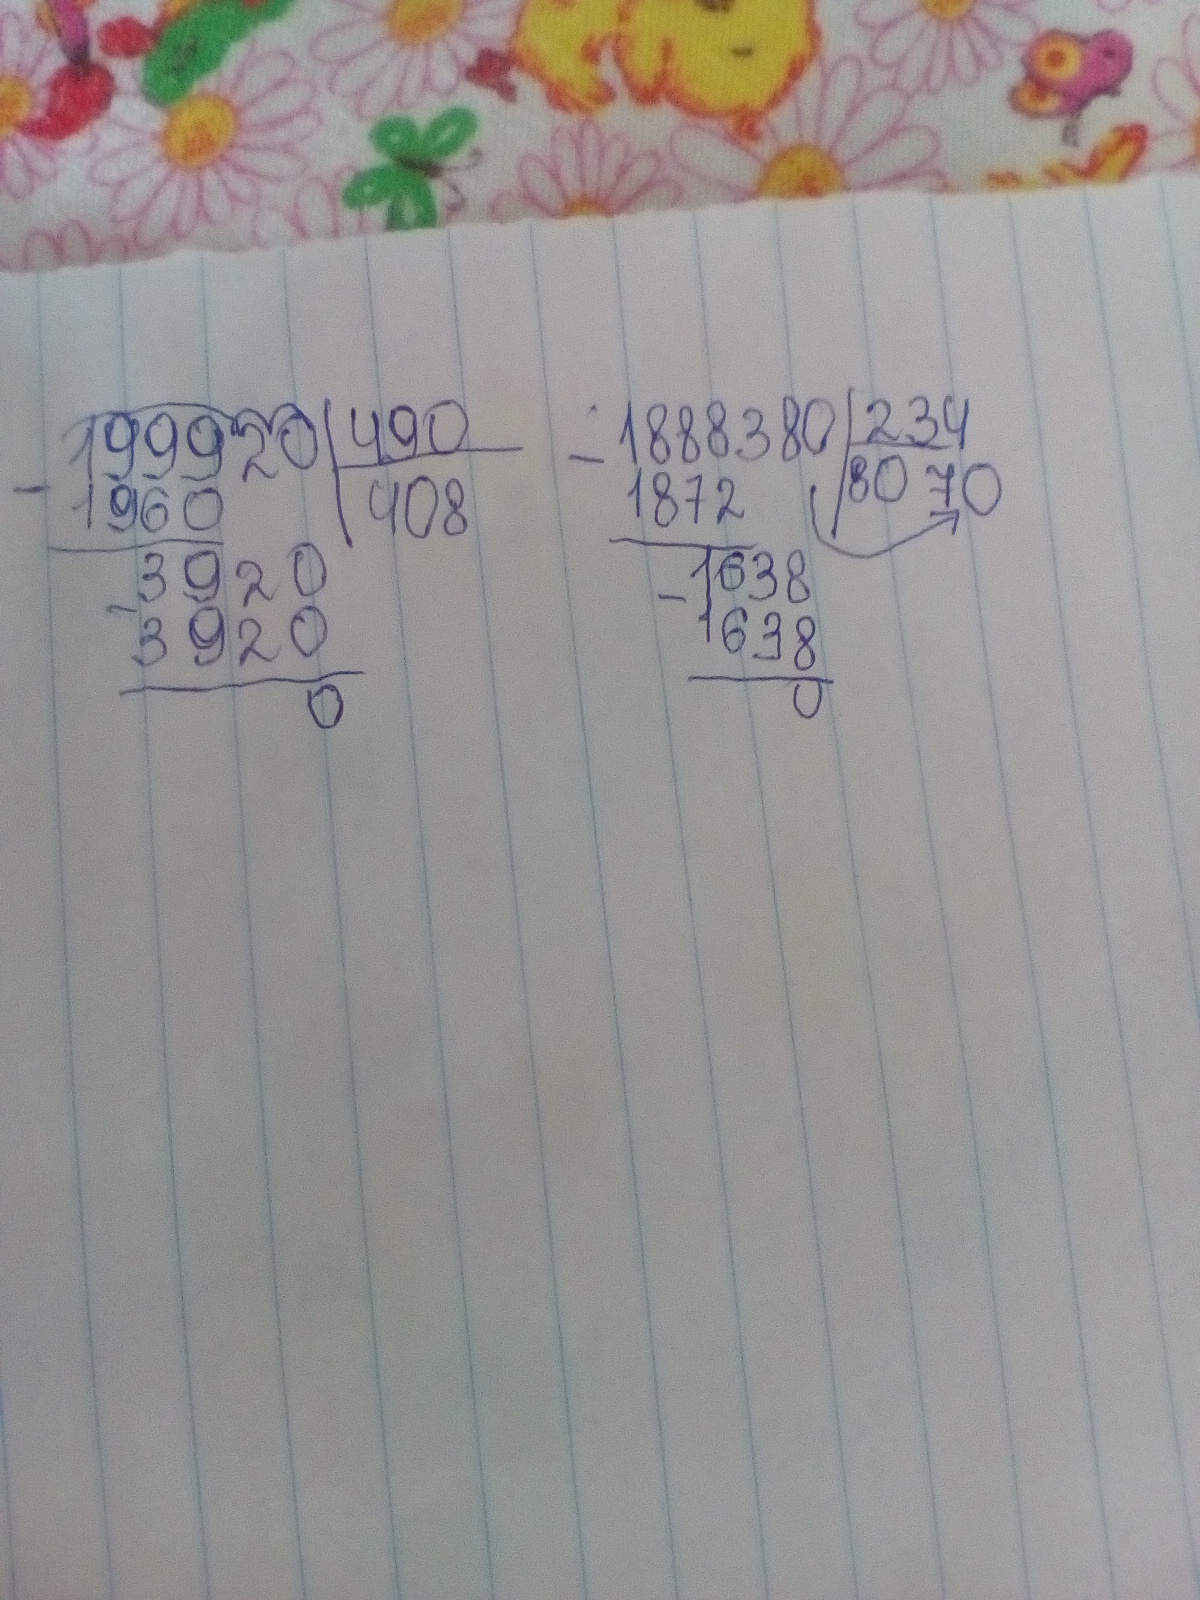 199920 | 490
- 1960 | 408
- 3920
3920
0
- 1888380 | 234
1872 | 8070
- 1638
1638
0